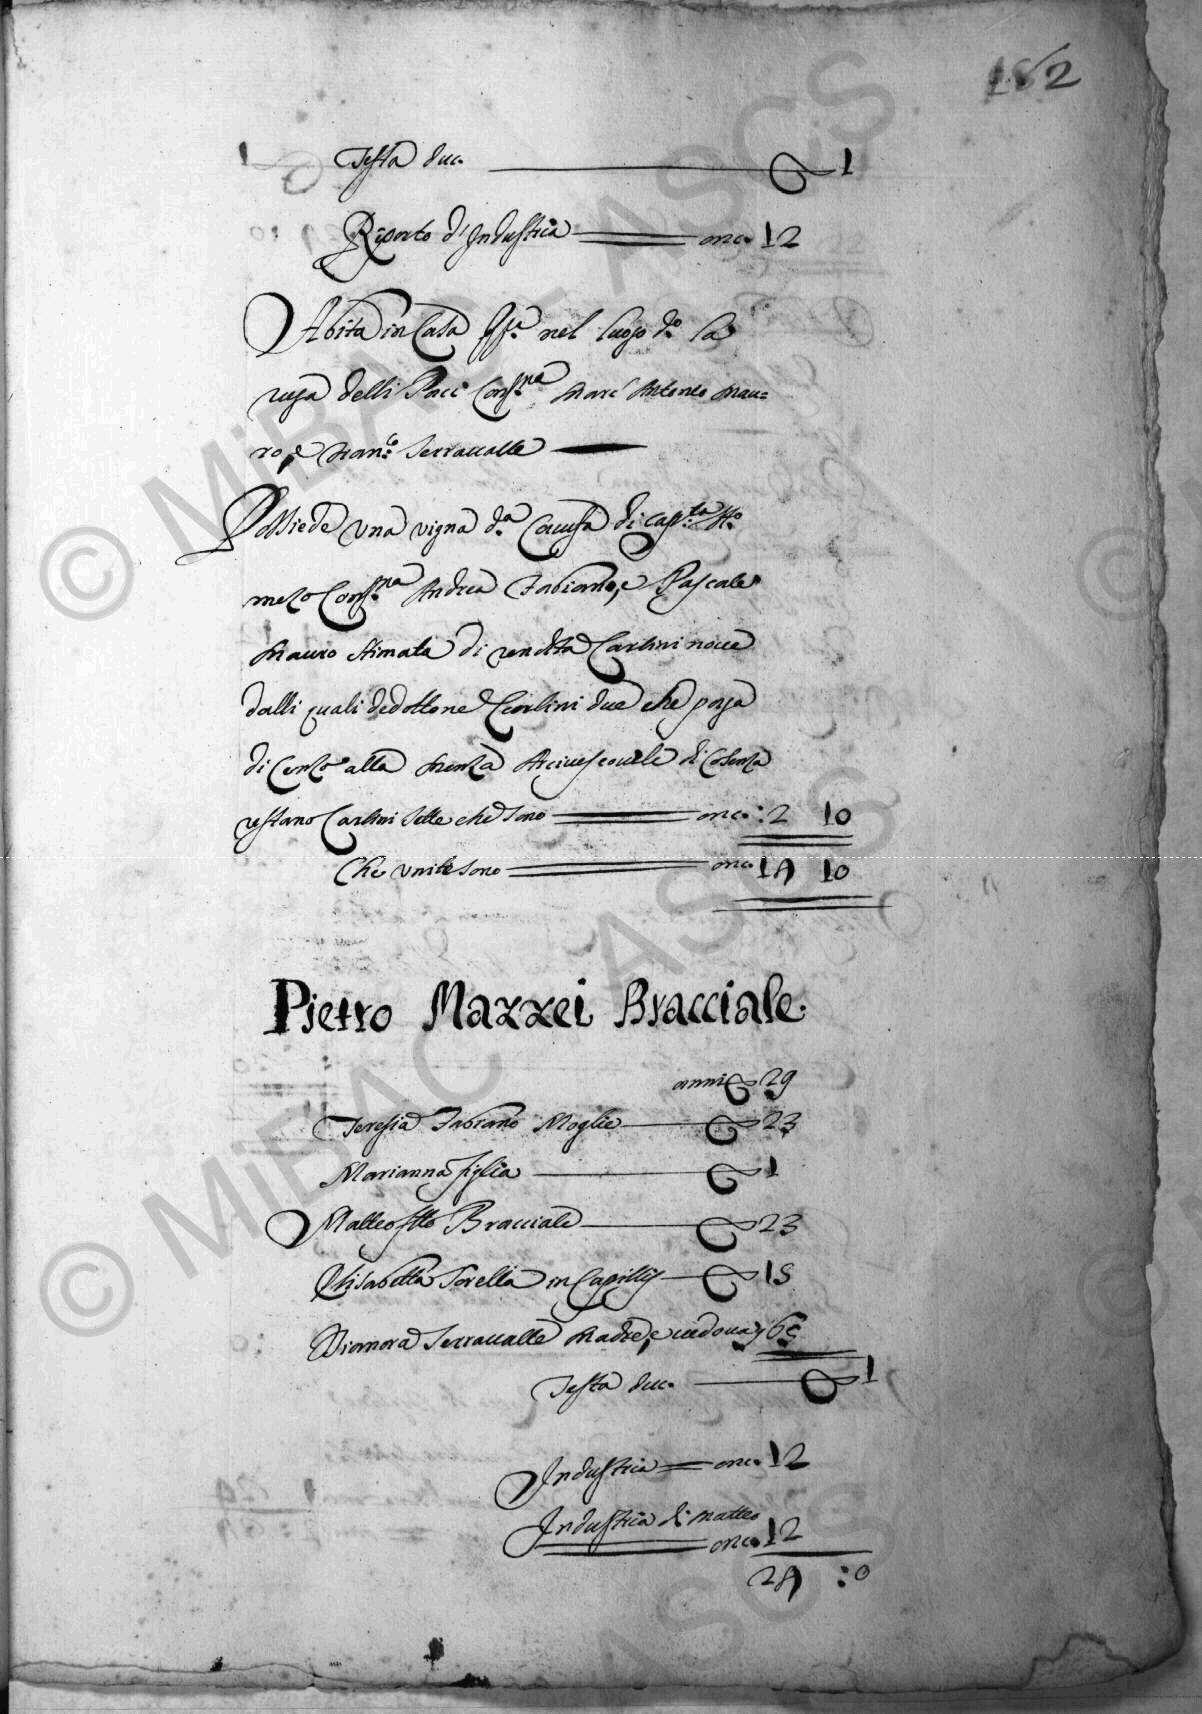 182
Testa duc. 1
Riporto d'Industria onc. 12
Abita in Casa pp.a nel luogo d.o la
ruga delli Pacci Conf.na Marc' Antonio Mau=
ro, e Fran.co Serravalle
Possiede una vigna d.a di cap.ta
mezo Conf.na Andrea Fabiano, e Pascale
Mauro stimata di rendita Carlini nove
dalli quali dedottone Carlini due che paga
di Cenzo alla Menza Arcivescovile di Cosenza
restano Carlini sette che sono onc. :2 10
Che unite sono onc. 14 10
Pietro Mazzei Bracciale.
anni 29
Teresia Fabiano Moglie 23
Marianna figlia 1
Matteo f̃llo Bracciale 23
Elisabetta Sorella in Capillis 15
Dianora Serravalle Madre, e vedova 65
Testa duc. 1
Industria onc. 12
Industria di Matteo
onc. 12
24 :0
© MiBAC - ASCS
© MiBAC - ASCS